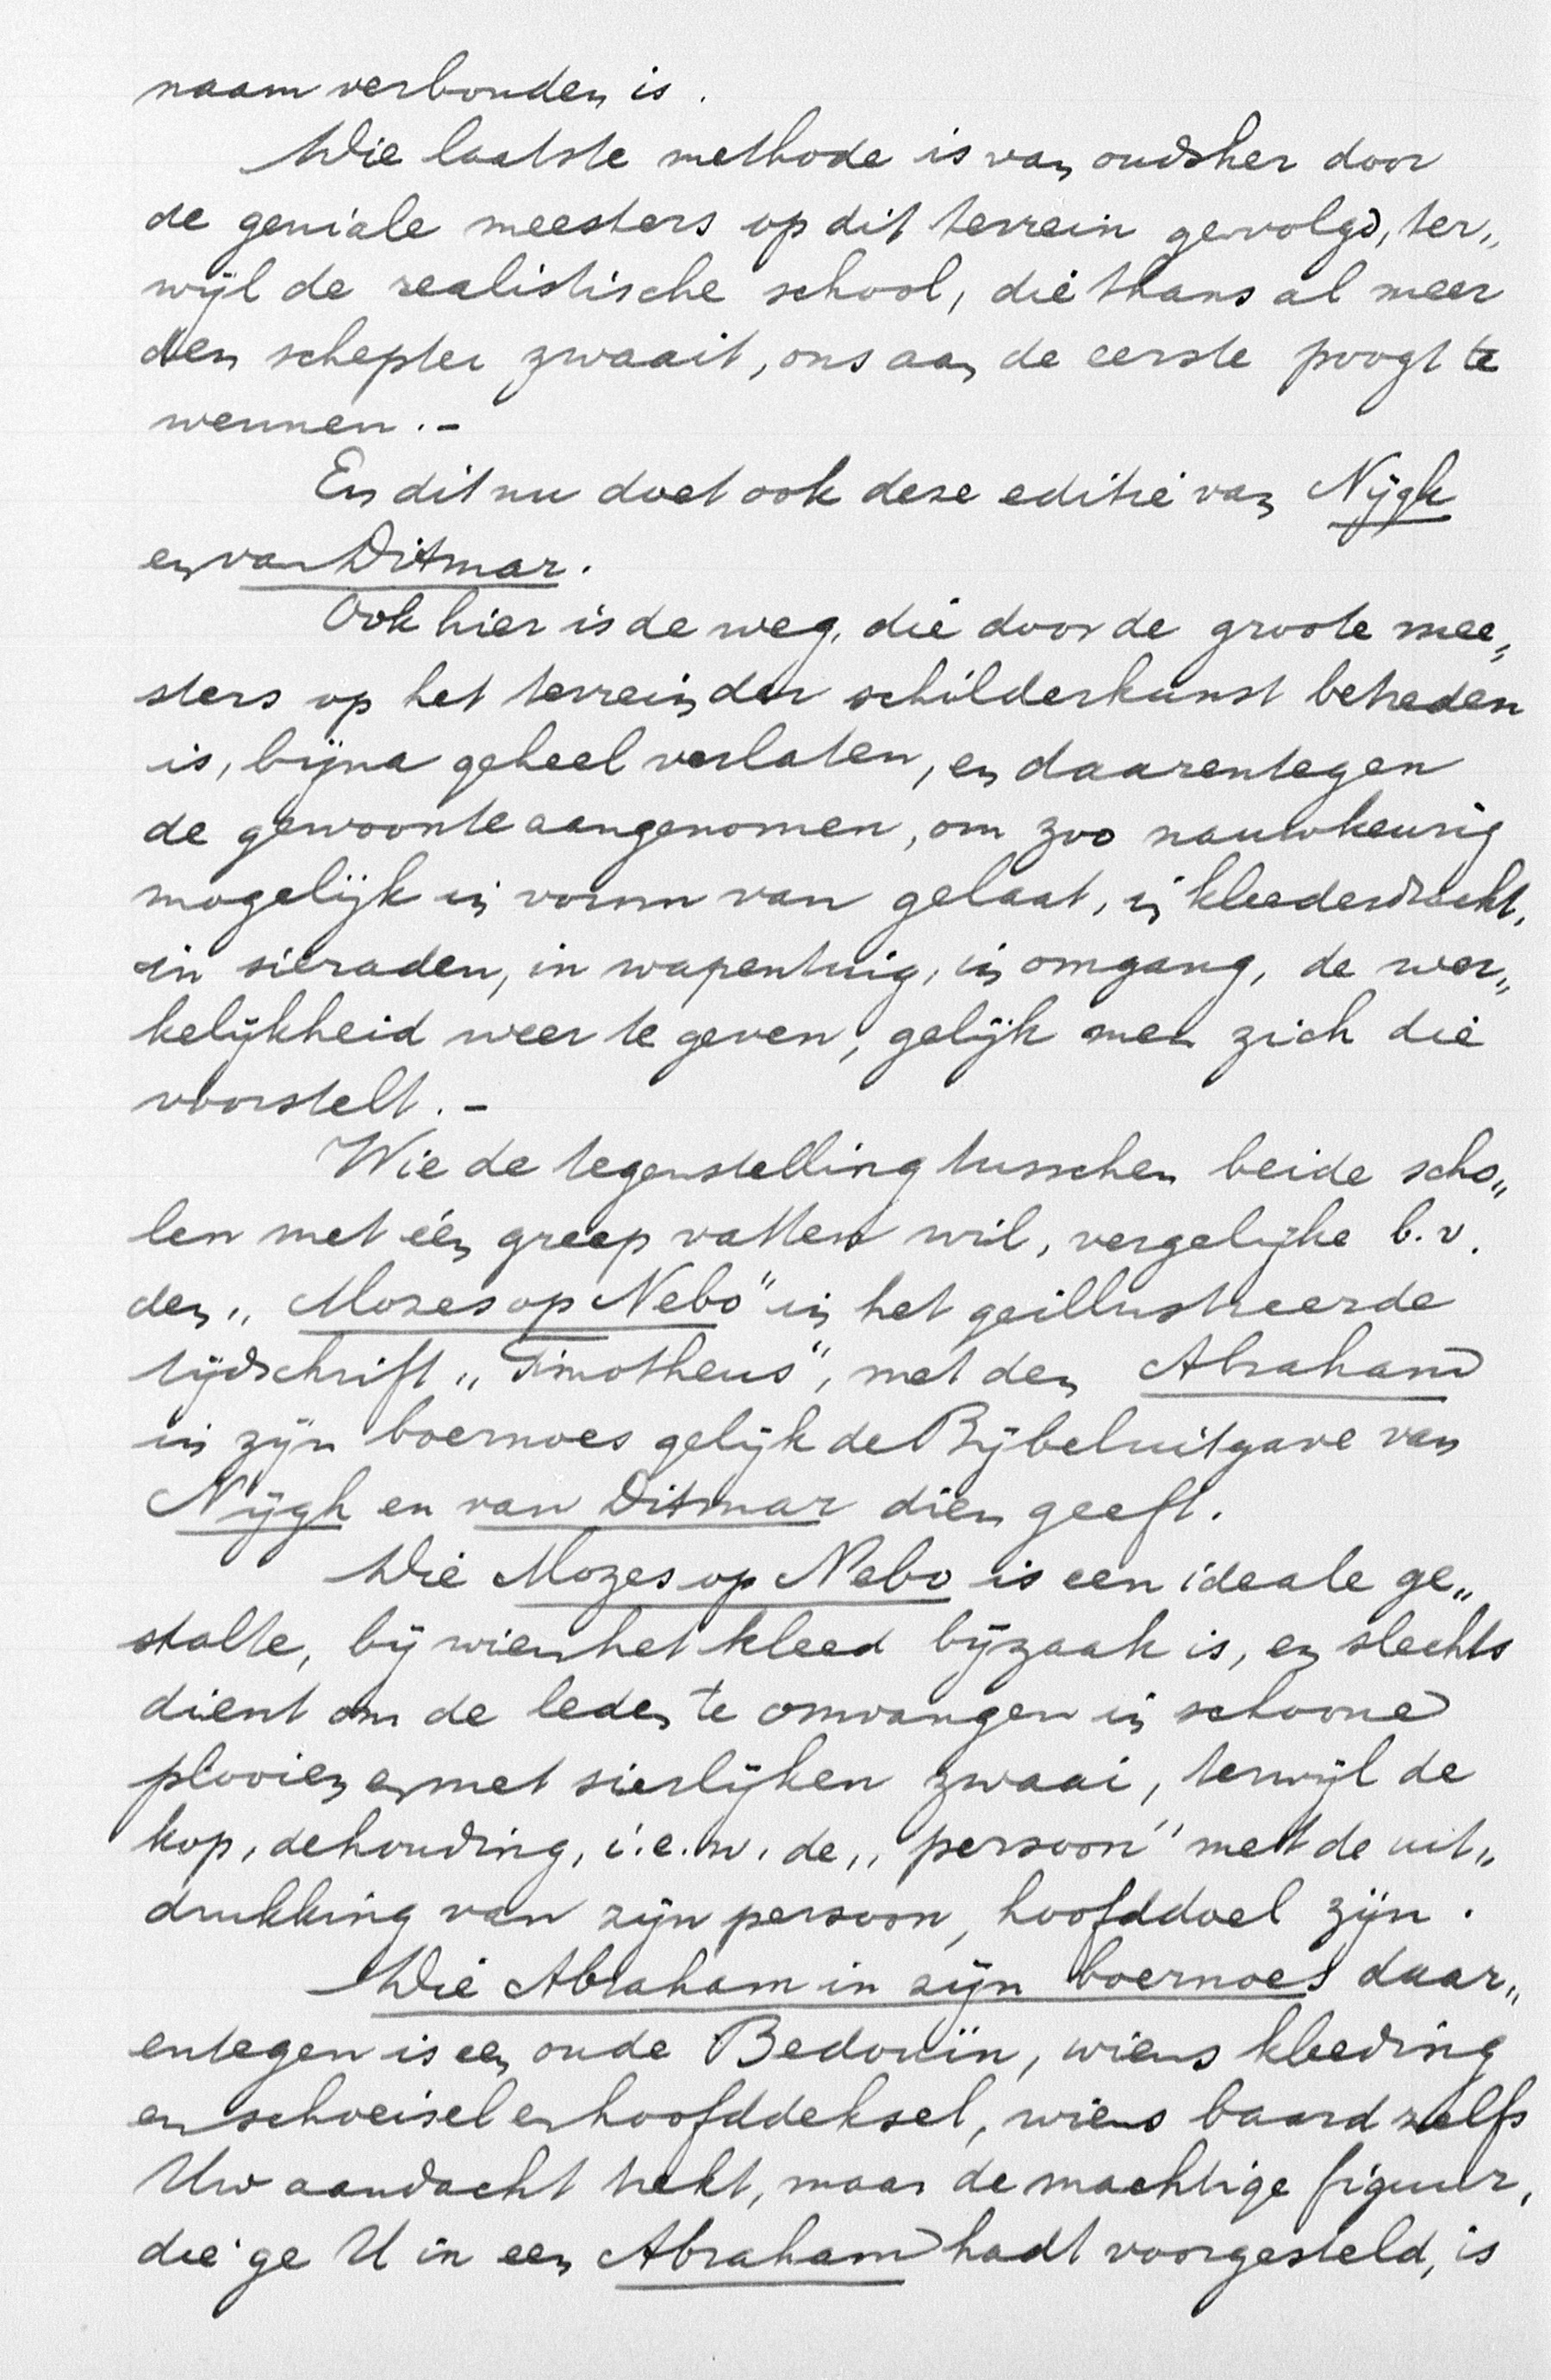 naam verbonden is.
Die laatste methode is van oudsher door
de geniale meesters op dit terrein gevolgd, ter„
wijl de realistische school, die thans al meer
den schepter zwaait, ons aan de eerste poogt te
wennen.-
En dit nu doet ook deze editie van Nijgh
en van Ditmar.
Ook hier is de weg, die door de groote mee„
sters op het terrein der schilderkunst betreden
is, bijna geheel verlaten, en daarentegen
de gewoonte aangenomen, om zoo nauwkeurig
mogelijk in vorm van gelaat, in kleederdracht,
in sieraden, in wapentuig, in omgang, de wer„
kelijkheid weer te geven, gelijk men zich die
voorstelt.-
Wie de tegenstelling tusschen beide scho„
len met één greep vatten wil, vergelijke b.v.
den „Mozes op Nebo" in het geillustreerde
tijdschrift „Timotheus", met den Abraham
in zijn boernoes gelijk de Bijbeluitgave van
Nijgh en van Ditmar dien geeft.
Die Mozes op Nebo is een ideale ge„
stalte, bij wien het kleed bijzaak is, en slechts
dient om de leden te omvangen in schoone
plooien en met sierlijken zwaai, terwijl de
kop, de houding, i.e.w. de „persoon" met de uit„
drukking van zijn persoon, hoofddoel zijn.
Die Abraham in zijn boernoes daar„
entegen is een oude Bedouïn, wiens kleeding
en schoeisel en hoofddeksel, wiens baard zelfs
Uw aandacht trekt, maar de machtige figuur,
die ge U in een Abraham hadt voorgesteld, is